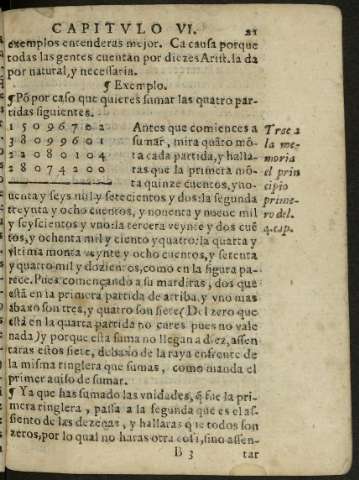 CAPITVLO VI. 21
exemplos entenderas mejor. Ca causa porque
todas las gentes cuentan por diezes Arist. la da
por natural, y necessaria.
¶ Exemplo.
¶ Põ por caso que quieres sumar las quatro par-
tidas siguientes.
1 5 0 9 6 7 0 2
3 8 0 9 9 6 0 1
2 2 0 8 0 1 0 4
2 8 0 7 4 2 0 0
Antes que comiences a
sumar, mira quãto mõ-
ta cada partida, y halla-
ras que la primera mõ-
ta quinze cuentos, y no-
Trae a
la me-
moria
el prin
cipio
prime-
ro del
4. cap.
uenta y seys mil y setecientos y dos: la segunda
treynta y ocho cuentos, y nonenta y nueue mil
y seyscientos y vno: la tercera veynte y dos cuẽ
tos, y ochenta mil y ciento y quatro: la quarta y
vltima monta veynte y ocho cuentos, y setenta
y quatro mil y dozientos, como en la figura pa-
rece. Pues començando a sumar diras, dos que
está en la primera partida de arriba, y vno mas
abaxo son tres, y quatro son siete (Del zero que
está en la quarta partida no cures pues no vale
nada) y porque esta suma no llegan a diez, assen
taras estos siete, debaxo de la raya enfrente de
la misma ringlera que sumas, como manda el
primer auiso de sumar.
¶ Ya que has sumado las vnidades, q̃ fue la pri-
mera ringlera, passa a la segunda que es el as-
siento de las dezenas, y hallaras que todos son
zeros, por lo qual no haras otra cosa, sino assen-
B 3 tar